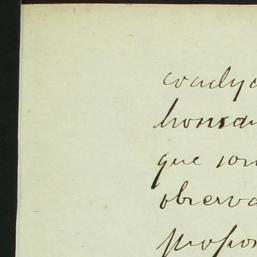 coadyu
honra
que son
observa
propo